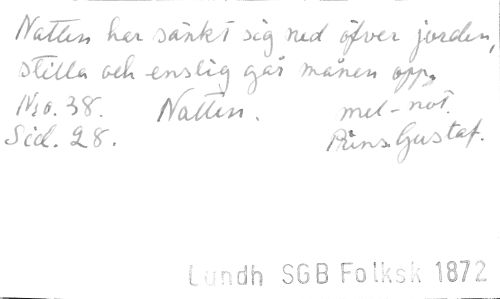 Natten har sänkt sig ned öfver jorden,
stilla och enslig går månen opp,
Nro. 38. Natten. mel-not.
Sid. 28. Prins Gustaf.
Lundh SGB Folksk 1872